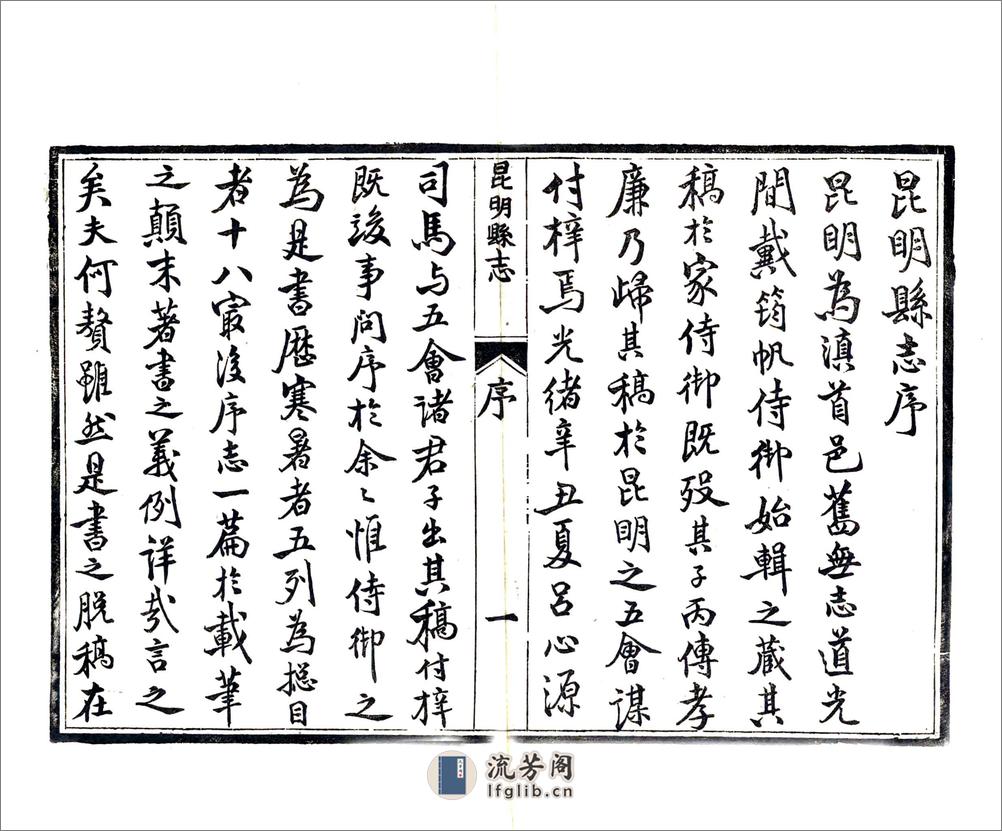 昆明縣志序
昆明為滇首邑舊無志道光
間戴筠帆侍御始輯之藏其
稿於家侍御既歿其子丙傳孝
廉乃歸其稿於昆明之五會謀
付梓焉光緒辛丑夏呂心源
昆明縣志
序
一
司馬与五會諸君子出其稿付梓
既竣事問序於余〻惟侍御之
為是書歷寒暑者五列為總目
者十八寂後序志一篇於載筆
之顛末著書之義例詳哉言之
矣夫何贅雖然是書之脱稿在
流芳阁
lfglib.cn